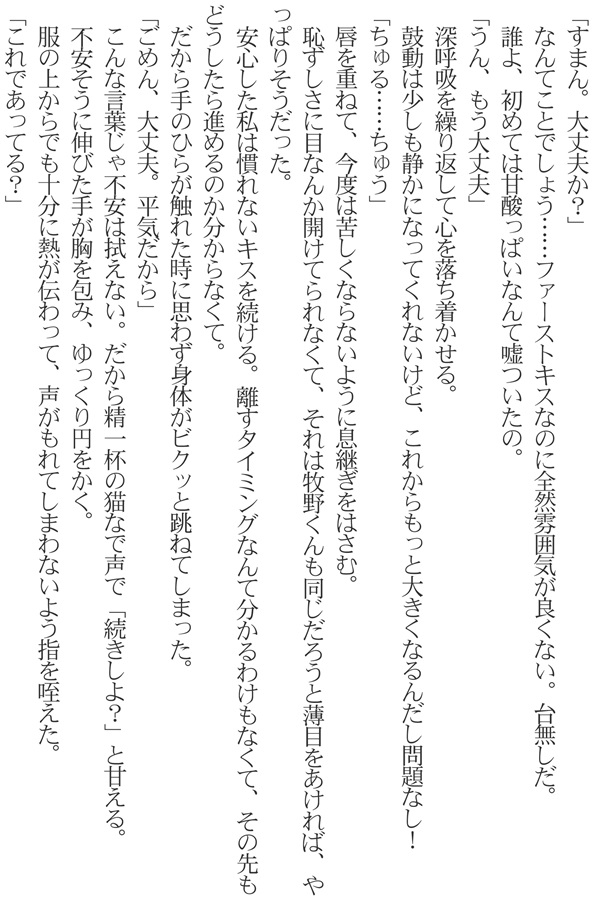 「すまん。大丈夫か？」
　なんてことでしょう……ファーストキスなのに全然雰囲気が良くない。台無しだ。
　誰よ、初めては甘酸っぱいなんて嘘ついたの。
「うん、もう大丈夫」
　深呼吸を繰り返して心を落ち着かせる。
　鼓動は少しも静かになってくれないけど、これからもっと大きくなるんだし問題なし！
「ちゅる……ちゅう」
　唇を重ねて、今度は苦しくならないように息継ぎをはさむ。
　恥ずしさに目なんか開けてられなくて、それは牧野くんも同じだろうと薄目をあければ、や
っぱりそうだった。
　安心した私は慣れないキスを続ける。離すタイミングなんて分かるわけもなくて、その先も
どうしたら進めるのか分からなくて。
　だから手のひらが触れた時に思わず身体がビクッと跳ねてしまった。
「ごめん、大丈夫。平気だから」
　こんな言葉じゃ不安は拭えない。だから精一杯の猫なで声で「続きしよ？」と甘える。
　不安そうに伸びた手が胸を包み、ゆっくり円をかく。
　服の上からでも十分に熱が伝わって、声がもれてしまわないよう指を咥えた。
「これであってる？」